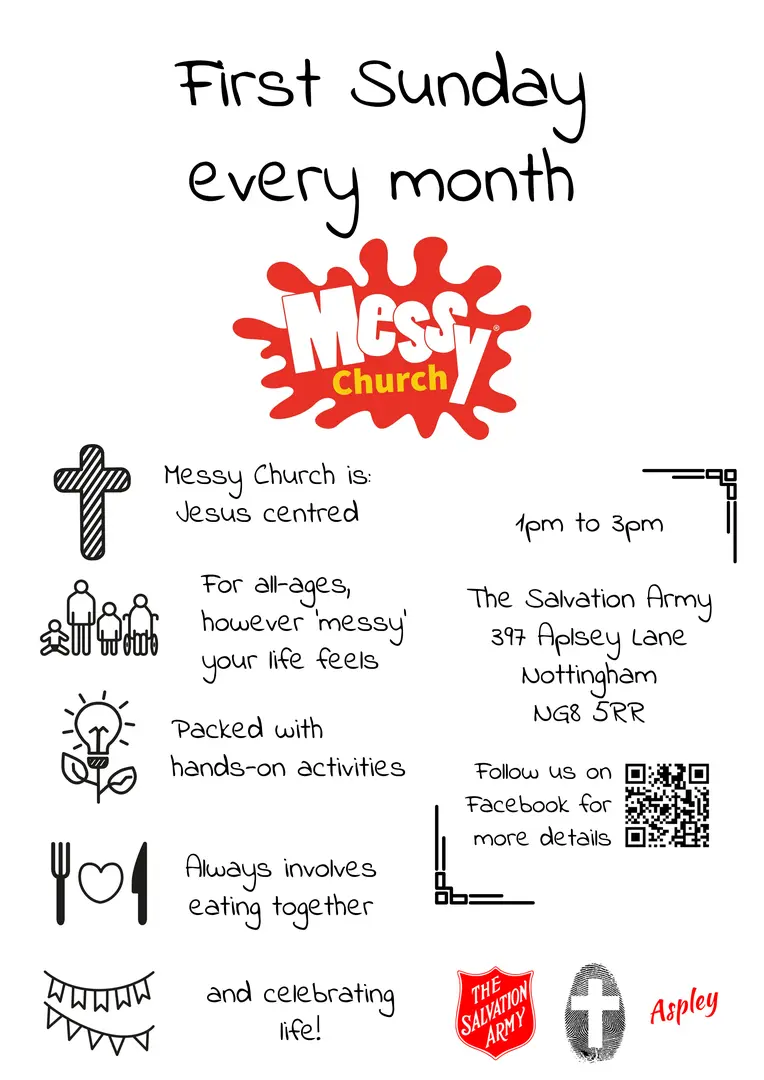 First Sunday
every month
Messy
Church
Messy Church is:
Jesus centred
For all-ages,
however 'messy'
your life feels
Packed with
hands-on activities
Always involves
eating together
and celebrating
life!
1pm to 3pm
The Salvation Army
397 Aplsey Lane
Nottingham
NG8 5RR
Follow us on
Facebook for
more details
THE
SALVATION
ARMY
Aspley